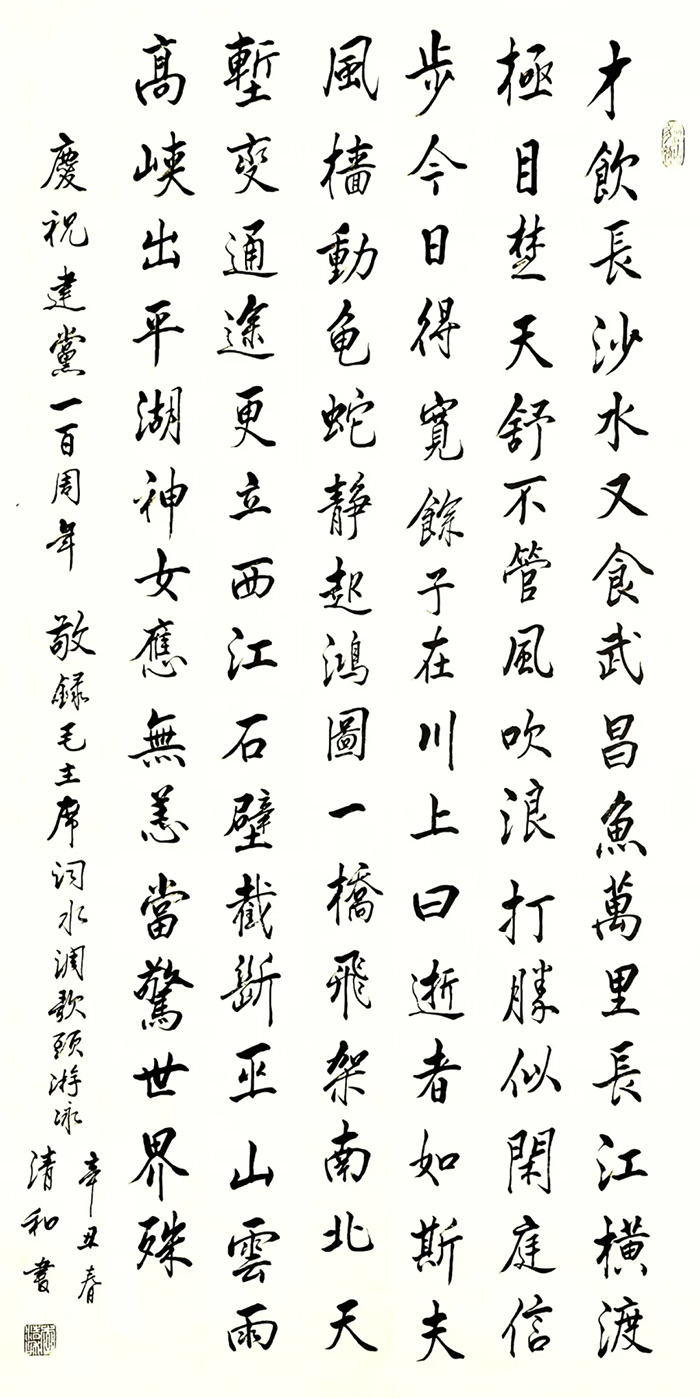 才飲長沙水又食武昌魚萬里長江橫渡
極目楚天舒不管風吹浪打勝似閑庭信
步今日得寬餘子在川上曰逝者如斯夫
風檣動龟蛇靜起鴻圖一橋飛架南北天
塹變通途更立西江石壁截斷巫山雲雨
高峽出平湖神女應無恙當驚世界殊
慶祝建黨一百周年 敬録毛主席词水调歌頭游泳
辛丑春
清和書